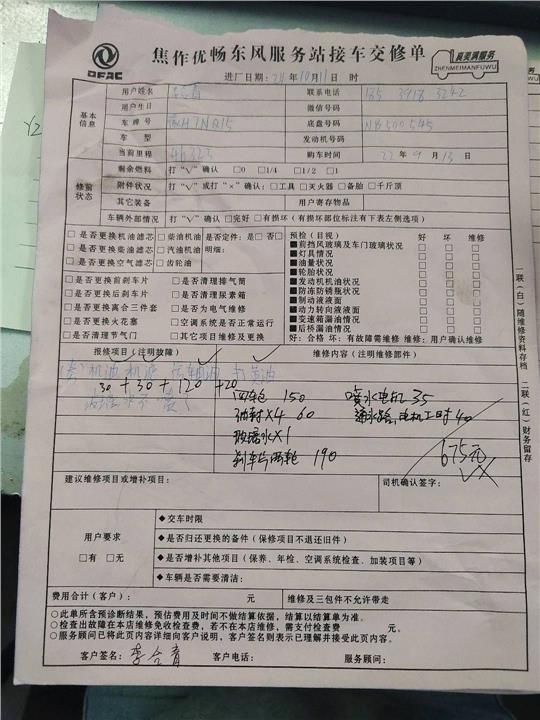 DFAC
焦作优畅东风服务站接车交修单
良美满服务
ZHENMEIMANFUWU
进厂日期:24年10月11日 时
基本信息
用户姓名 联系电话
用户生日 微信号码
车牌号 底盘号码
车型 发动机号码
当前里程 46323 购车时间 22年9月13日
修前状态
剩余燃料 打"√"确认 □0 □1/4 □1/2 □1
附件状况 打"√"或打"×"确认:□工具 □灭火器 □备胎 □千斤顶
其它装备 用户寄存物品
车辆外部情况 打"√"确认 □完好 □有损坏(有损坏部位标注有下表左侧选项)
□是否更换机油滤芯 □柴油机油 □是否定件:是□否□
□是否更换柴油滤芯 □汽油机油 明细:
□是否更换空气滤芯 □齿轮油
□是否更换前刹车片 □是否清理排气筒
□是否更换后刹车片 □是否清理尿素箱
□是否更换离合三件套 □是否为电气维修
□是否更换火花塞 □空调系统是否正常运行
□是否清理节气门 □其它项目维修及更换
预检(目视) 好 坏 维修
■前挡风玻璃及车门玻璃状况 □ □ □
■灯具情况 □ □ □
■油量状况 □ □ □
■轮胎状况 □ □ □
■发动机机油情况 □ □ □
■防冻防锈瓶状况 □ □ □
■制动液液面 □ □ □
■动力转向液液面 □ □ □
■变速箱漏油情况 □ □ □
■后桥漏油情况 □ □ □
好:合格 坏:有故障需维修 维修:用户确认维修
报修项目(注明故障) 维修内容(注明维修部件)
机油 机滤 黄油
30+30+120+20
四轮 150 喷水电机 35
油封×4 60 通水路,电机工时 40
玻璃水×1
刹车片两轮 190
675元
建议维修项目或增补项目: 司机确认签字:
用户要求
□有 □无
◆交车时限
◆是否归还更换的备件(保修项目不退还旧件)
◆是否增补其他项目(保养、年检、空调系统检查、加装项目等)
◆车辆是否需要清洁:
费用合计(客户): 元 维修及三包件不允许带走
○此单所含预诊断结果,预估费用及时间不做结算依据,结算以结算单为准。
○检查出故障在本店维修免收检查费,若不在本店维修,需支付检查费 元。
○服务顾问已将此页内容详细向客户说明,客户签名则表示已理解并接受此页内容。
客户签名:李合青 客户电话: 服务顾问:
一联(白)随维修资料存档 二联(红)财务留存